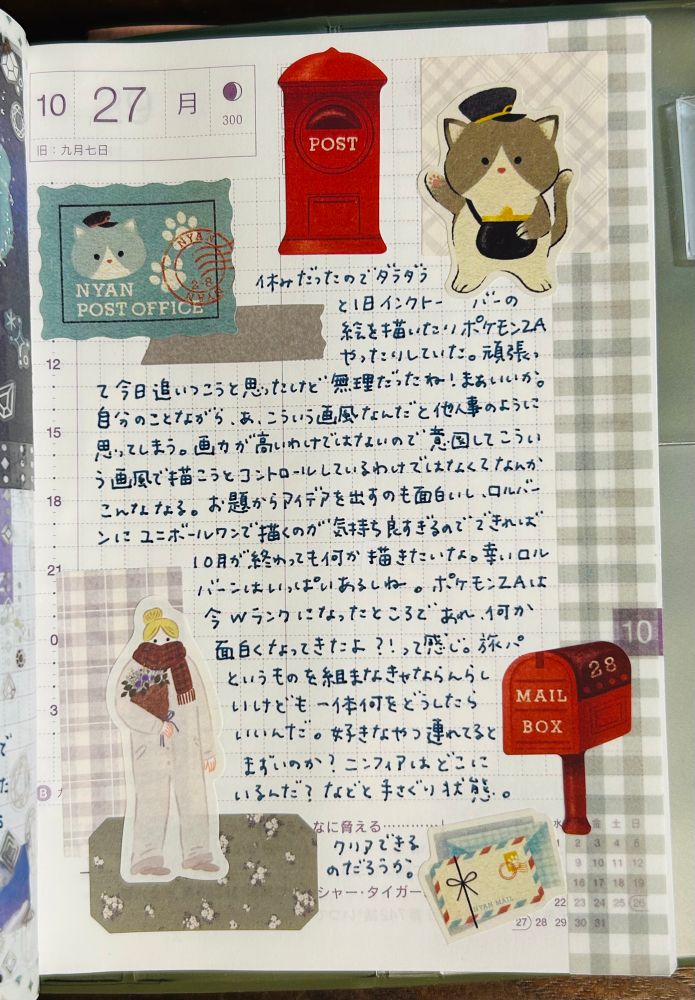 10 27 月
300
旧：九月七日
POST
NYAN
POST OFFICE
NYAN
28
NYAN
休みだったのでダラダラ
と1日インクトーバーの
絵を描いたりポケモンZA
やったりしていた。頑張っ
て今日追いつこうと思ったけど無理だったね！まぁいいか。
自分のことながら、あ、こういう画風なんだと他人事のように
思ってしまう。画力が高いわけではないので意図してこうい
う画風で描こうとコントロールしているわけではなくてなんか
こんななる。お題からアイデアを出すのも面白いし、ロルバー
ンにユニボールワンで描くのが気持ち良すぎるのでできれば
10月が終わっても何か描きたいな。幸いロル
バーンはいっぱいあるしね。ポケモンZAは
今Wランクになったところであれ、何か
面白くなってきたよ？！って感じ。旅パ
というものを組まなきゃならんらし
いけども一体何をどうしたら
いいんだ。好きなやつ連れてると
まずいのか？ニンフィアはどこに
いるんだ？などと手さぐり状態。
クリアできる
のだろうか。
12
15
18
21
0
3
B
10
28
MAIL
BOX
なに脅える
シャー・タイガー
NYAN MAIL
水 金 土 日
2 3 4 5
9 10 11 12
16 17 18 19
22 23 24 25 26
27 28 29 30 31